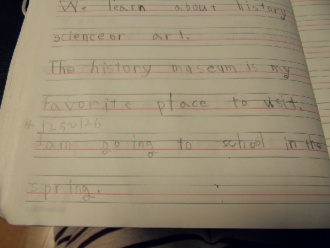 We learn about history
science or art.
The history museum is my
favorite place to visit.
I am going to school in the
spring.